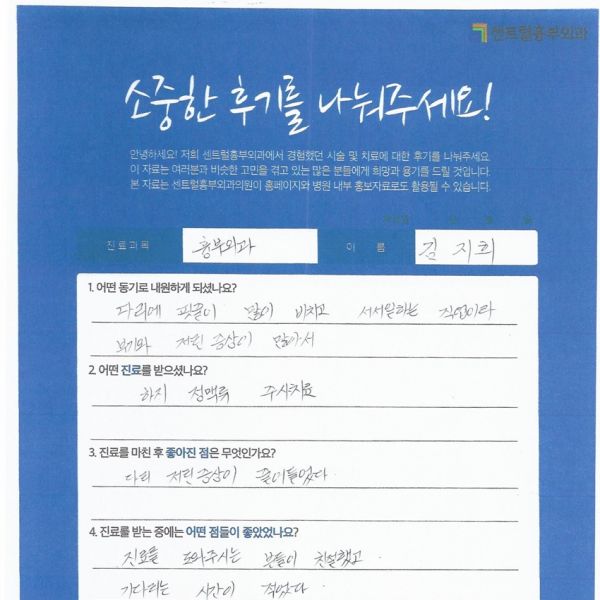 센트럴흉부외과
소중한 후기를 나눠주세요!
안녕하세요! 저희 센트럴흉부외과에서 경험했던 시술 및 치료에 대한 후기를 나눠주세요.
이 자료는 여러분과 비슷한 고민을 겪고 있는 많은 분들에게 희망과 용기를 드릴 것입니다.
본 자료는 센트럴흉부외과의원이 홈페이지와 병원 내부 홍보자료로도 활용될 수 있습니다.
진료과목 흉부외과 이 름 김 지희
1. 어떤 동기로 내원하게 되셨나요?
다리에 핏줄이 많이 비치고 서서일하는 직업이라
붓기와 저린 증상이 많아서
2. 어떤 진료를 받으셨나요?
하지 정맥류 주사치료
3. 진료를 마친 후 좋아진 점은 무엇인가요?
다리 저린 증상이 줄어들었다.
4. 진료를 받는 중에는 어떤 점들이 좋았었나요?
진료를 도와주시는 분들이 친절했고
기다리는 시간이 적었다.